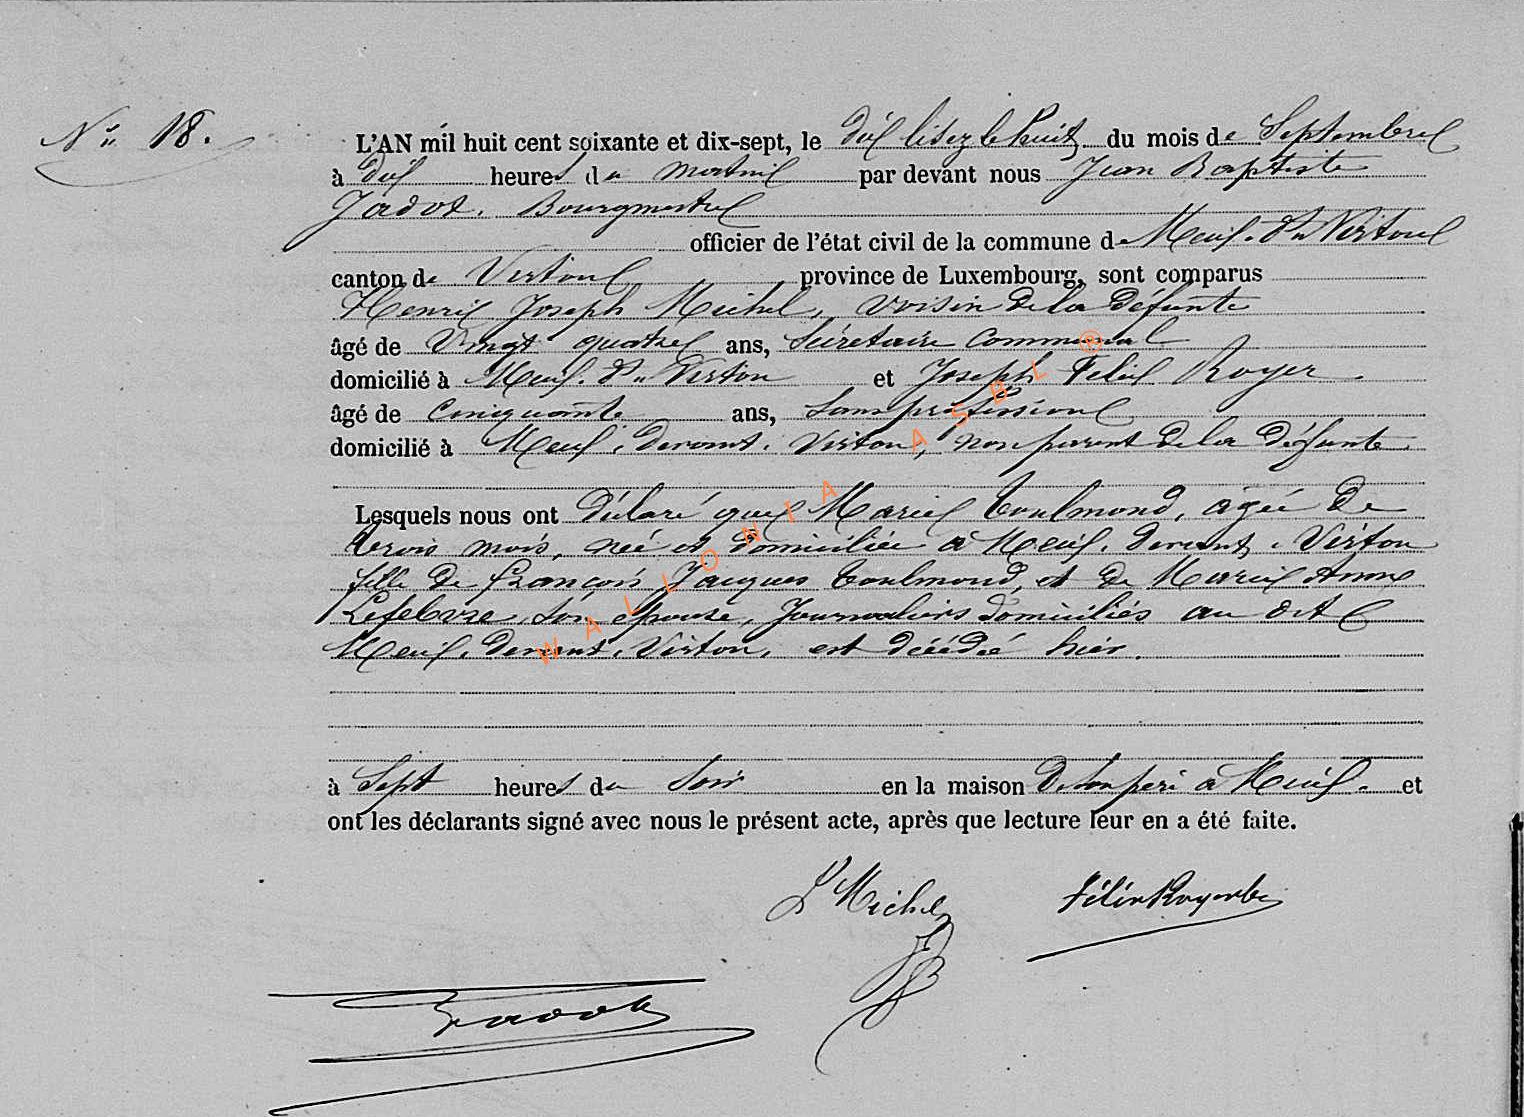 N° 18.
L'AN mil huit cent soixante et dix-sept, le dix lisez le huit du mois de Septembre
à dix heures du matin par devant nous Jean Baptiste
Jadot, Bourgmestre
officier de l'état civil de la commune de Meix-dt Virton
canton de Virton province de Luxembourg, sont comparus
Henri Joseph Michel, voisin de la défunte
âgé de vingt quatre ans, Sécretaire Communal
domicilié à Meix-dt Virton et Joseph Félix Royer
âgé de cinquante ans, sans profession
domicilié à Meix, devant, Virton, non parent de la défunte
Lesquels nous ont déclaré que Marie Toulmond, agée de
trois mois, née et domiciliée à Meix, devant, Virton
fille de françois Jacques Toulmond, et de Marie Anne
Lefebvre, son épouse, Journaliers domiciliés au dit
Meix, devant, Virton, est décédée hier.
à Sept heures du soir en la maison de son père à Meix. et
ont les déclarants signé avec nous le présent acte, après que lecture leur en a été faite.
Michel Félix Royer
Jadot
WALLONIA ASBL ®